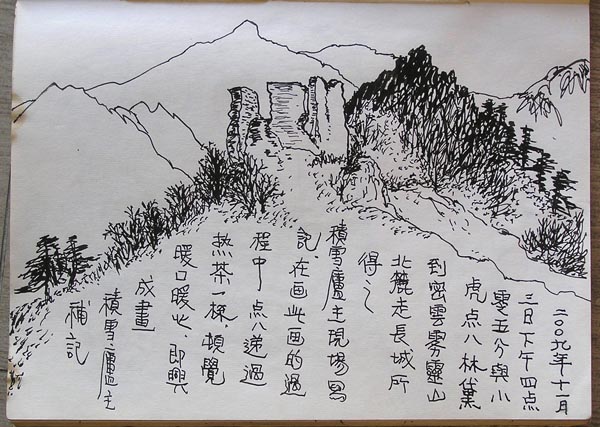 二〇〇九年十一月
三日下午四点
零五分與小
虎点八林黛
到密雲雾靈山
北麓走長城所
得之
積雪廬主現場寫
記，在画此画的過
程中点八递過
热茶一杯，頓覺
暖口暖心，即興
成畫
積雪廬主
補記